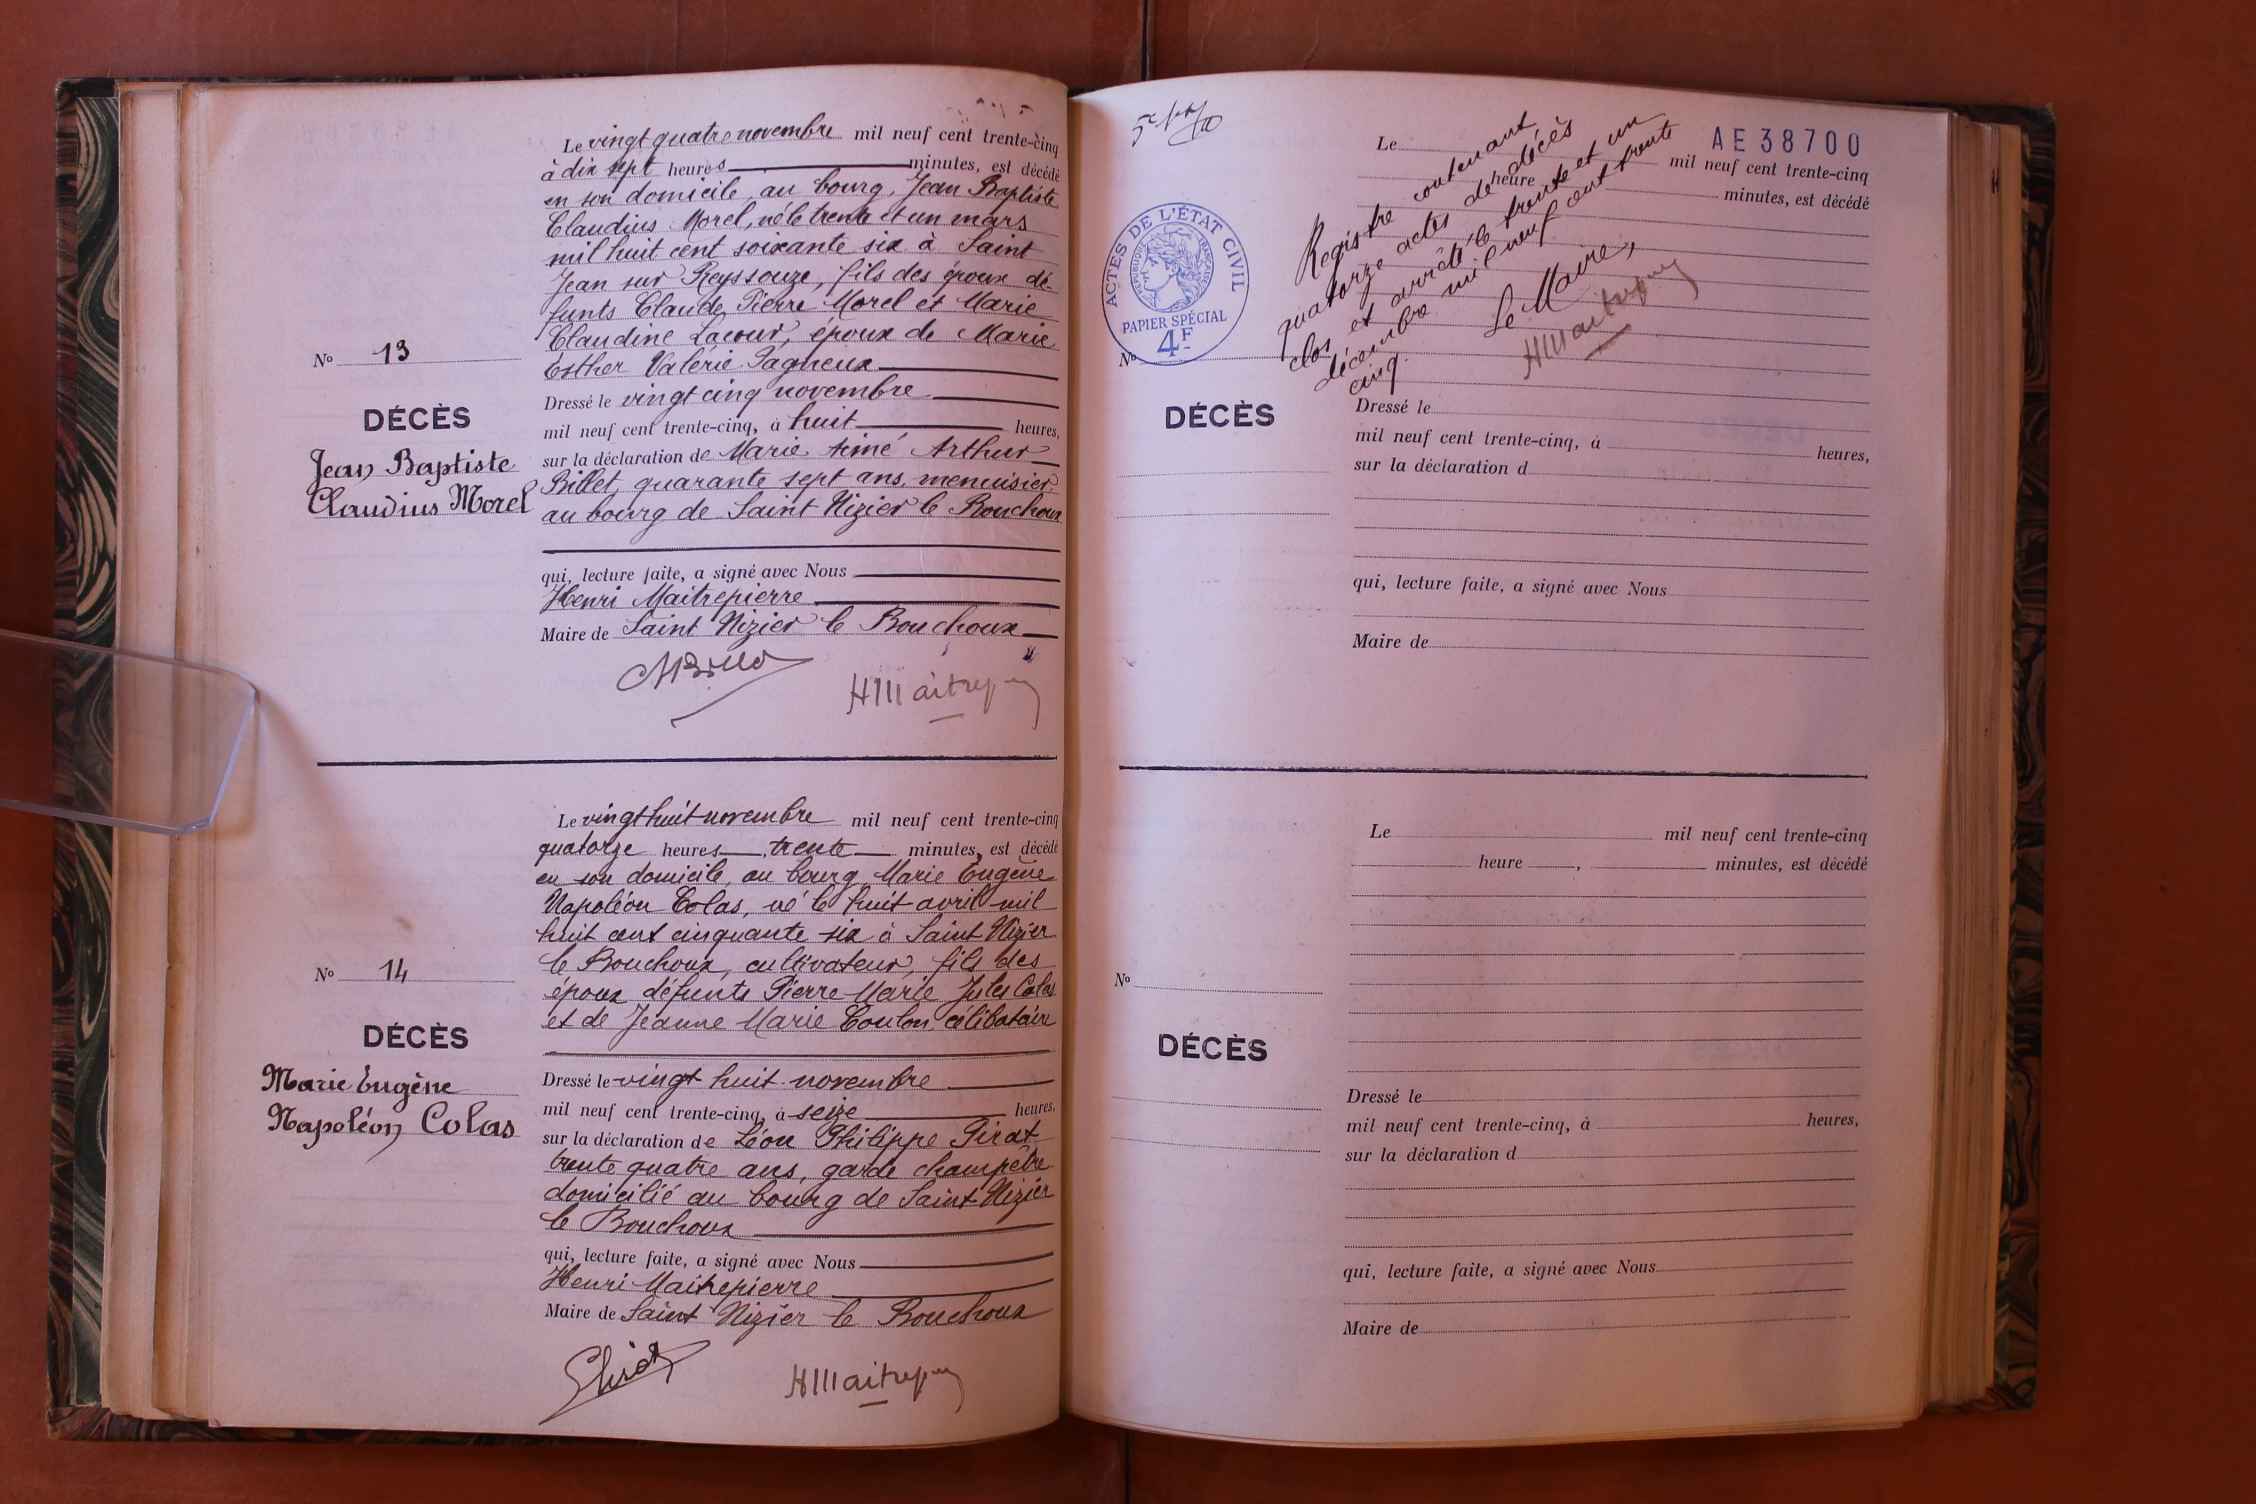 Le vingt quatre novembre mil neuf cent trente-cinq
à dix sept heures minutes, est décédé
en son domicile, au bourg, Jean Baptiste
Claudius Morel, né le trente et un mars
mil huit cent soixante six à Saint
Jean sur Reyssouze, fils des époux dé-
funts Claude Pierre Morel et Marie
Claudine Lacour, époux de Marie
Esther Valérie Pagneux
Nº 13
DÉCÈS
Jean Baptiste
Claudius Morel
Dressé le vingt cinq novembre
mil neuf cent trente-cinq, à huit heures,
sur la déclaration de Marie Aimé Arthur
Billet, quarante sept ans, menuisier,
au bourg de Saint Nizier le Bouchoux
qui, lecture faite, a signé avec Nous
Henri Maitrepierre
Maire de Saint Nizier le Bouchoux
HMaitrepierre
Le vingt huit novembre mil neuf cent trente-cinq
quatorze heures, trente minutes, est décédé
en son domicile, au bourg, Marie Eugène
Napoléon Colas, né le huit avril mil
huit cent cinquante six à Saint Nizier
le Bouchoux, cultivateur, fils des
époux défunts Pierre Marie Jules Colas
et de Jeanne Marie Coulon, célibataire
Nº 14
DÉCÈS
Marie Eugène
Napoléon Colas
Dressé le vingt huit novembre
mil neuf cent trente-cinq, à seize heures,
sur la déclaration de Léon Philippe Pirat
trente quatre ans, garde champêtre
domicilié au bourg de Saint Nizier
le Bouchoux
qui, lecture faite, a signé avec Nous
Henri Maitrepierre
Maire de Saint Nizier le Bouchoux
HMaitrepierre
AE 38700
Le mil neuf cent trente-cinq
heure minutes, est décédé
ACTES DE L'ÉTAT CIVIL
RÉPUBLIQUE FRANÇAISE
PAPIER SPÉCIAL
4F
Registre contenant
quatorze actes de décès
clos et arrêté le trente et un
décembre mil neuf cent trente
cinq.
Le Maire,
HMaitrepierre
Nº
DÉCÈS
Dressé le
mil neuf cent trente-cinq, à heures,
sur la déclaration d
qui, lecture faite, a signé avec Nous
Maire de
Le mil neuf cent trente-cinq
heure , minutes, est décédé
Nº
DÉCÈS
Dressé le
mil neuf cent trente-cinq, à heures,
sur la déclaration d
qui, lecture faite, a signé avec Nous
Maire de